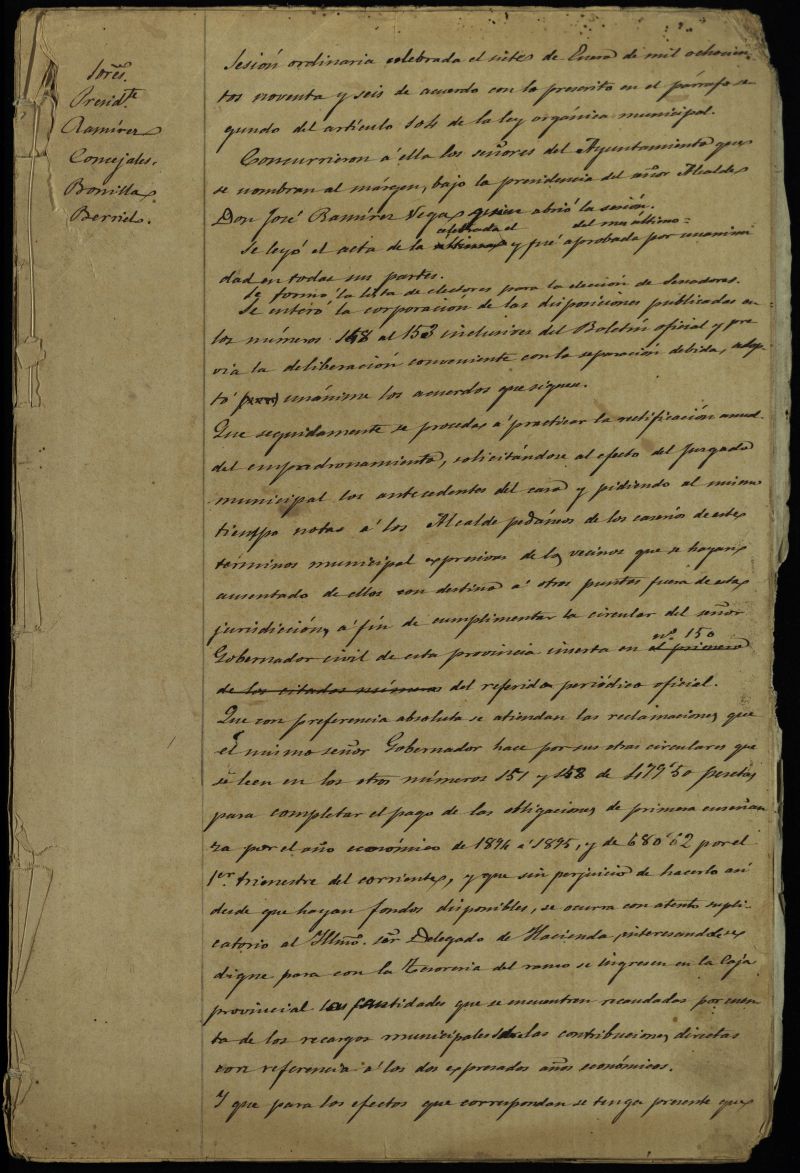 Sores.
Presidte
Ramírez
Concejales.
Bonilla
Berriel.
Sesión ordinaria celebrada el siete de Enero de mil ochocien
tos noventa y seis de acuerdo con lo prescrito en el párrafo se
gundo del artículo 104 de la ley orgánica municipal.
Concurrieron á ella los señores del Ayuntamiento que
se nombran al márgen, bajo la presidencia del señor Alcalde
Don José Ramírez Vega quien abrió la sesión.
celebrada el del mes último
Se leyó el acta de la última y fué aprobada por unanimi
dad en todas sus partes.
Se formó la lista de electores para la elección de Senadores.
Se enteró la corporación de las disposiciones publicadas en
los números 148 al 153 inclusives del Boletín oficial y pre
via la deliberación conveniente con la separación debida, adop
tó unánime los acuerdos que siguen.
Que seguidamente se proceda á practicar la rectificación anual
del empadronamiento, solicitándose al efecto del Juzgado
municipal los antecedentes del caso y pidiendo al mismo
tiempo notas á los Alcalde pedáneos de los caseríos de este
términos municipal expresivas de los vecinos que se hayan
ausentado de ellos con destino á otros puntos fuera de esta
jurisdicción, á fin de cumplimentar la circular del señor
nº 150
Gobernador civil de esta provincia inserta en el primero
de los citados números del referido periódico oficial.
Que con preferencia absoluta se atiendan las reclamaciones que
el mismo señor Gobernador hace por sus otras circulares que
se leen en los otros números 151 y 148 de 479'50 pesetas
para completar el pago de las obligaciones de primera enseñan
za por el año económico de 1894 á 1895, y de 680'62 por el
1er trimestre del corriente, y que sin perjuicio de hacerlo así
desde que hayan fondos disponibles, se ocurra con atento supli
catorio al Illmo. señr Delegado de Hacienda, interesando se
digne para con la Tesoreria del ramo se ingresen en la Caja
provincial las cantidades que se encuentren recaudadas por cuen
ta de los recargos municipales de las contribuciones directas
con referencia á los dos expresados años económicos.
Y que para los efectos que correspondan se tenga presente que